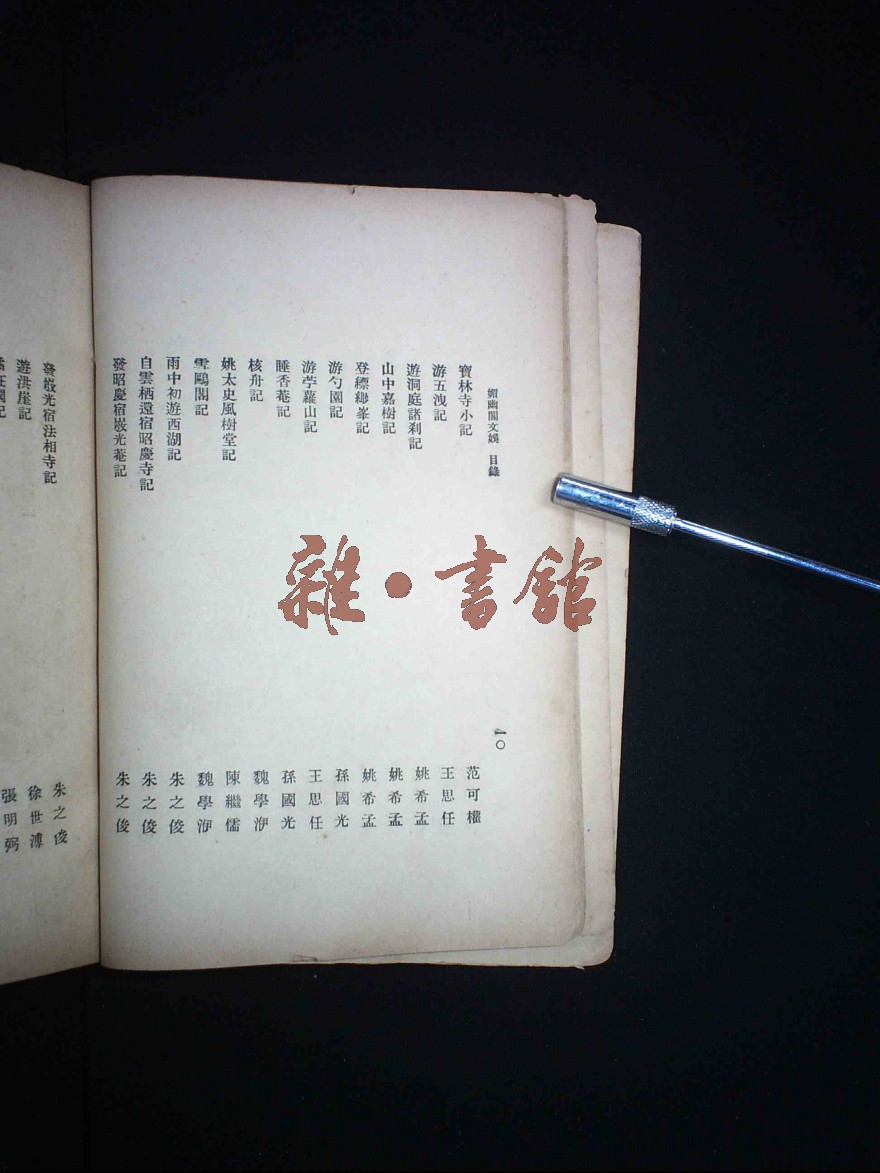 媚幽閣文娛 目錄 一〇
寶林寺小記 范可權
游五洩記 王思任
遊洞庭諸刹記 姚希孟
山中嘉樹記 姚希孟
登縹緲峯記 姚希孟
游勺園記 孫國光
游苧蘿山記 王思任
睡香菴記 孫國光
核舟記 魏學洢
姚太史風樹堂記 陳繼儒
雪鷗閣記 魏學洢
雨中初遊西湖記 朱之俊
自雲栖還宿昭慶寺記 朱之俊
發昭慶宿光菴記 朱之俊
發光宿法相寺記 朱之俊
遊洪崖記 徐世溥
記 張明弼
雜·書館